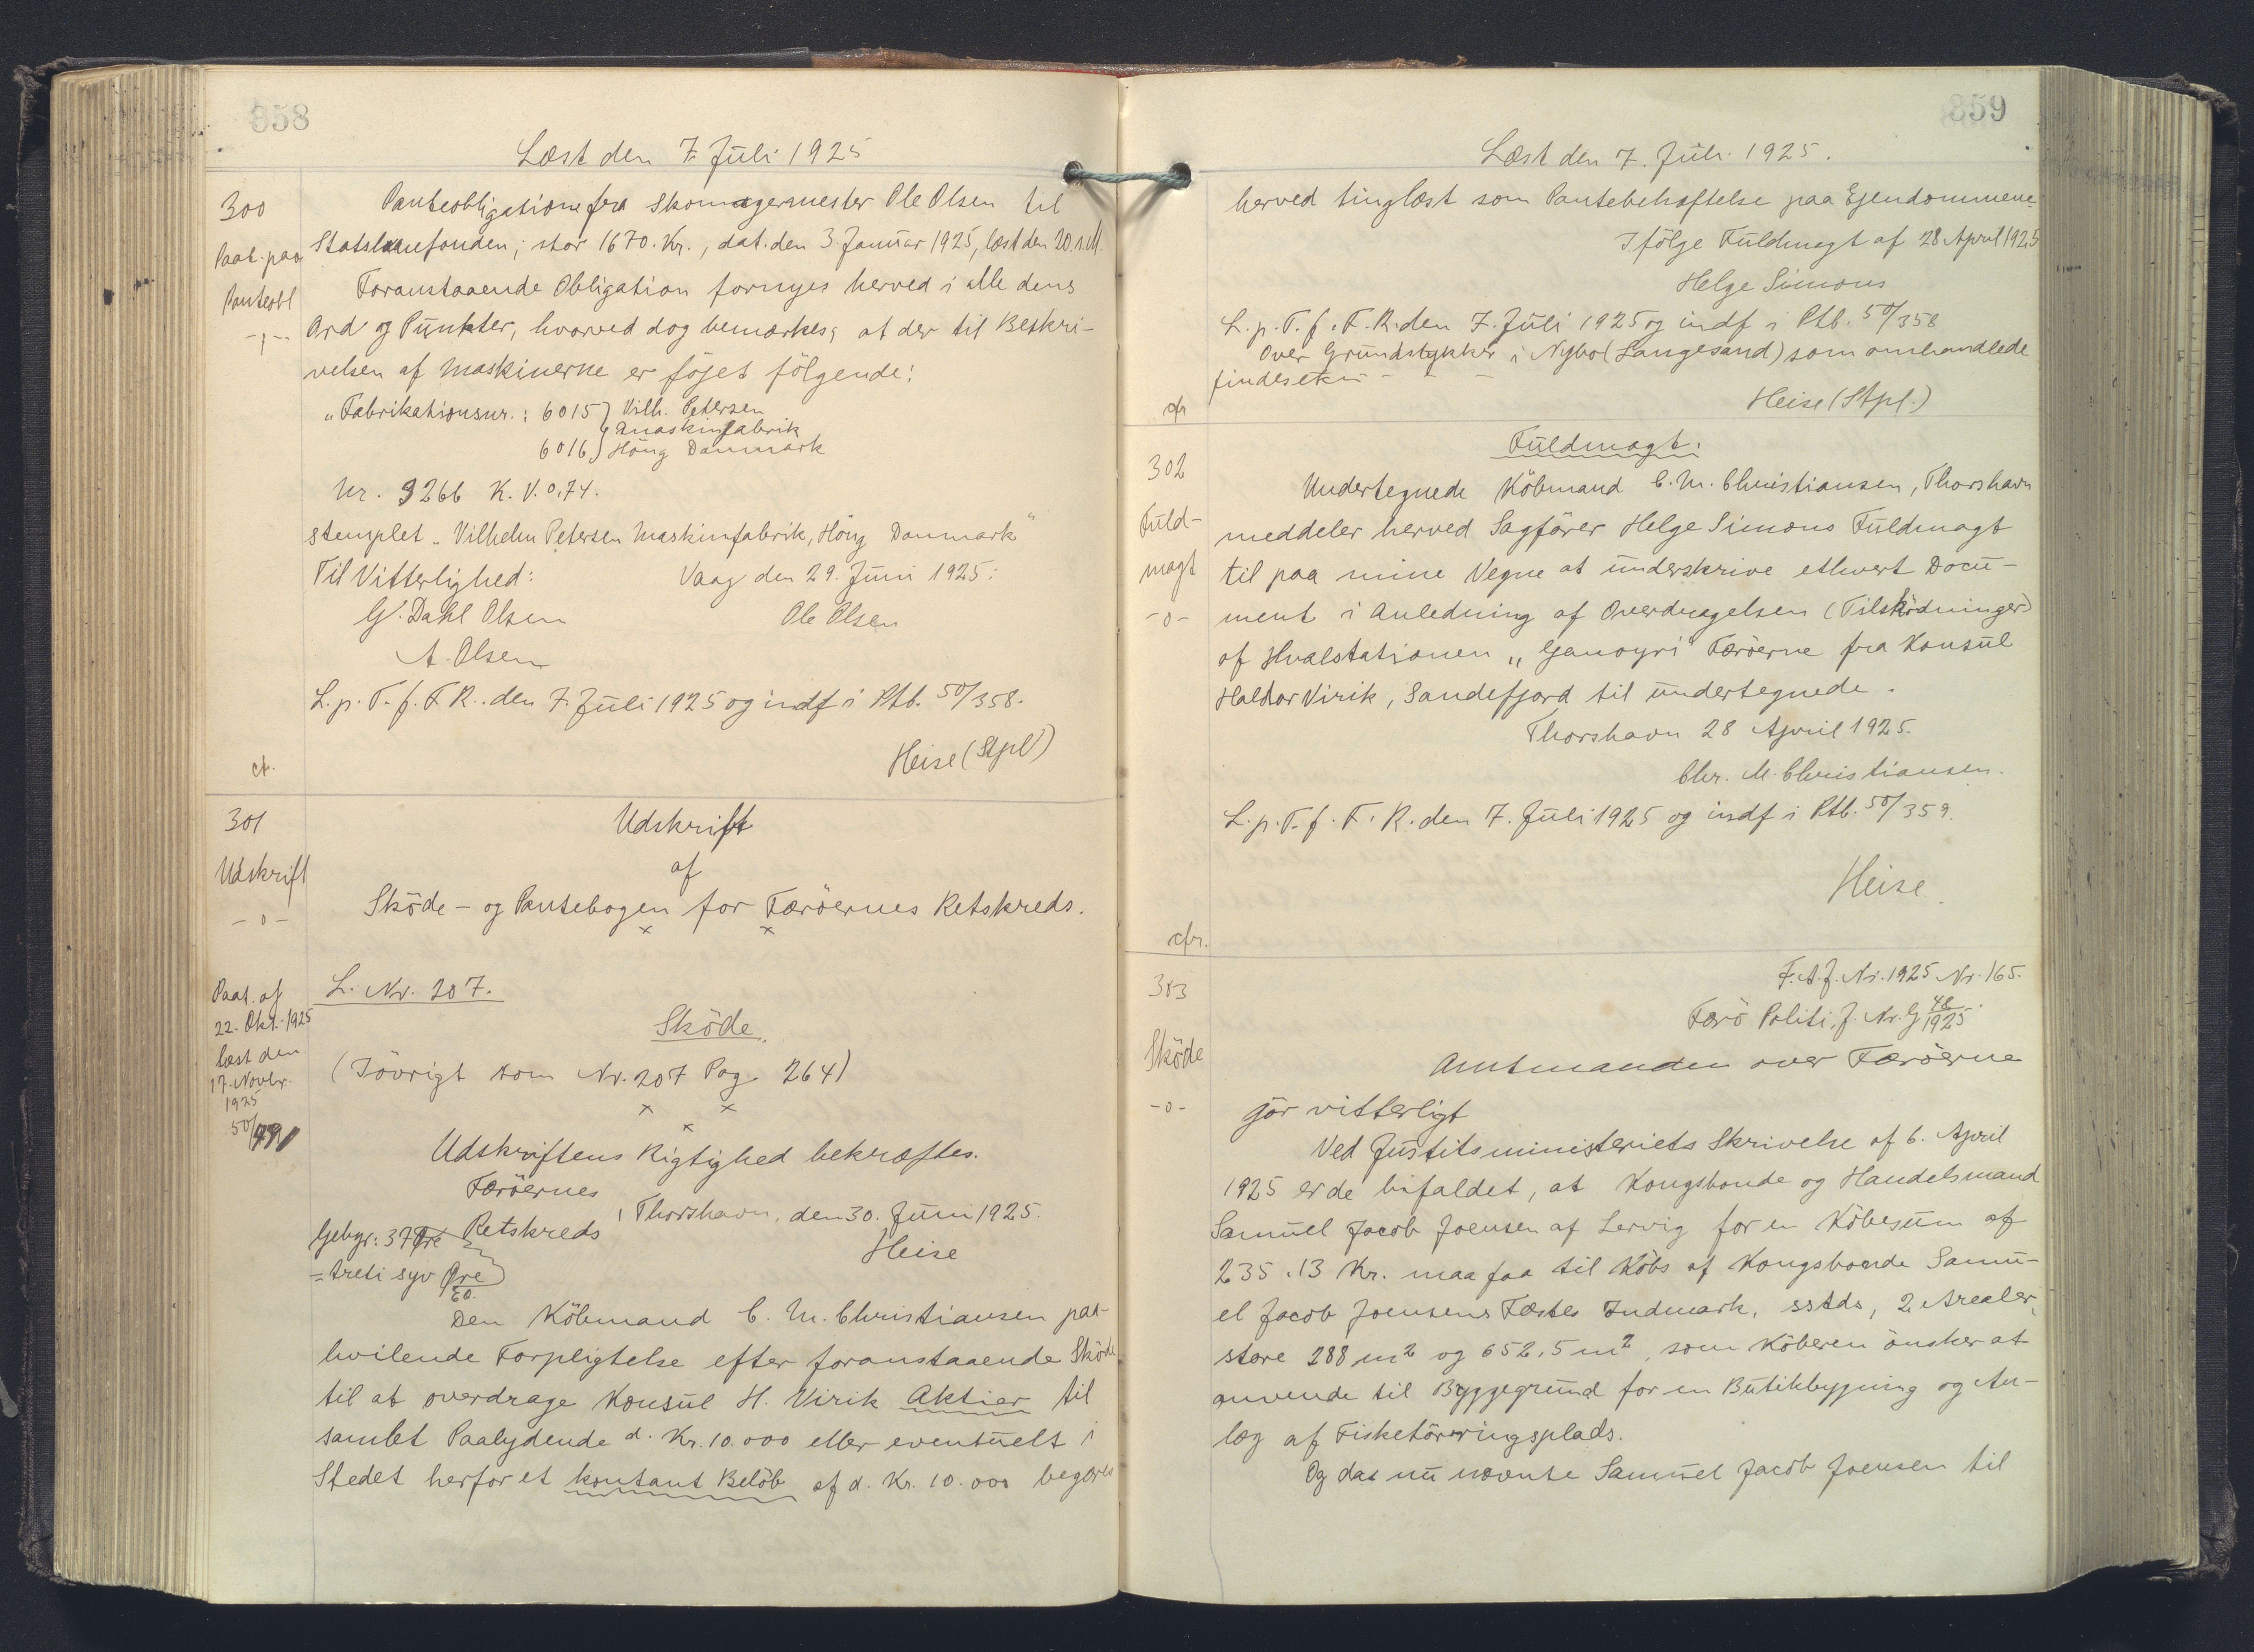 358
Læst den 7. Juli 1925
300
Paat. paa
Panteobl
Panteobligation fra Skomagermester Ole Olsen til
Statslaanefonden, stor 1670. Kr., dat. den 3. Januar 1925, læst den 20. s.M.
Foranstaaende Obligation fornyes herved i alle dens
Ord og Punkter, hvorved dog bemærkes, at der til Beskri-
velsen af Maskinerne er föjet fölgende:
"Fabrikationsnr.: 6015 } Vilh. Petersen
Maskinfabrik
6016 } Höng Danmark
Nr. 9266 K. V. 0,74.
stemplet "Vilhelm Petersen Maskinfabrik, Höng Danmark"
Til Vitterlighed: Vaag den 29. Juni 1925:
G. Dahl Olsen Ole Olsen
A. Olsen
L. p. T. f. F. R. den 7. Juli 1925 og indf i Ptb. 50/358.
Heise (Stpl)
cf.
301
Udskrift
- o -
Udskrift
af
Sköde- og Pantebogen for Færöernes Retskreds.
x x
Paat. af
22. Okt. 1925
læst den
17. Novbr.
1925
50/
L. Nr. 207.
Sköde.
(Iövrigt som Nr. 207 Pag. 264)
x x
x
Udskriftens Rigtighed bekræftes.
Færöernes
Retskreds, Thorshavn, den 30. Juni 1925.
Gebyr: 37 Øre
Heise
= treti syv Øre
Den Köbmand C. M. Christiansen paa-
hvilende Forpligtelse efter foranstaaende Sköde
til at overdrage Konsul H. Virik Aktier til
samlet Paalydende d. Kr. 10.000 eller eventuelt i
Stedet herfor et kontant Belöb af d. Kr. 10.000 begæres
359
Læst den 7. Juli 1925.
herved tinglæst som Pantebehæftelse paa Ejendommene
Ifölge Fuldmagt af 28 April 1925
Helge Simons
L. p. T. f. F. R. den 7. Juli 1925 og indf i Ptb. 50/358
Over Grundstykker i Nybo (Langesand) som omhandlede
findes
Heise (Stpl.)
cfr
302
Fuld-
magt
- o -
Fuldmagt.
Undertegnede Köbmand C. M. Christiansen, Thorshavn
meddeler herved Sagförer Helge Simons Fuldmagt
til paa mine Vegne at underskrive ethvert Docu-
ment i Anledning af Overdragelsen (Tilsködninger)
af Hvalstationen "Gamoyri" Færöerne fra Konsul
Haldor Virik, Sandefjord til undertegnede.
Thorshavn 28 April 1925.
Chr. M. Christiansen.
L. p. T. f. F. R. den 7. Juli 1925 og indf i Ptb. 50/359.
Heise
cfr.
303
Sköde
- o -
F. A. J. Nr. 1925 Nr. 165.
Færö Politi. J. Nr. G 48/1925.
Amtmanden over Færöerne
gör vitterligt
Ved Justitsministeriets Skrivelse af 6. April
1925 er de bifaldet, at Kongsbonde og Handelsmand
Samuel Jacob Joensen af Lervig for en Köbesum af
235.13 Kr. maa faa til Köbs af Kongsbonde Samu-
el Jacob Joensens Fæstes Indmark, sstds, 2 Arealer,
store 288 m² og 652,5 m², som Köberen önsker at
anvende til Byggegrund for en Butikbygning og An-
læg af Fisketörringsplads.
Og da nu nævnte Samuel Jacob Joensen til